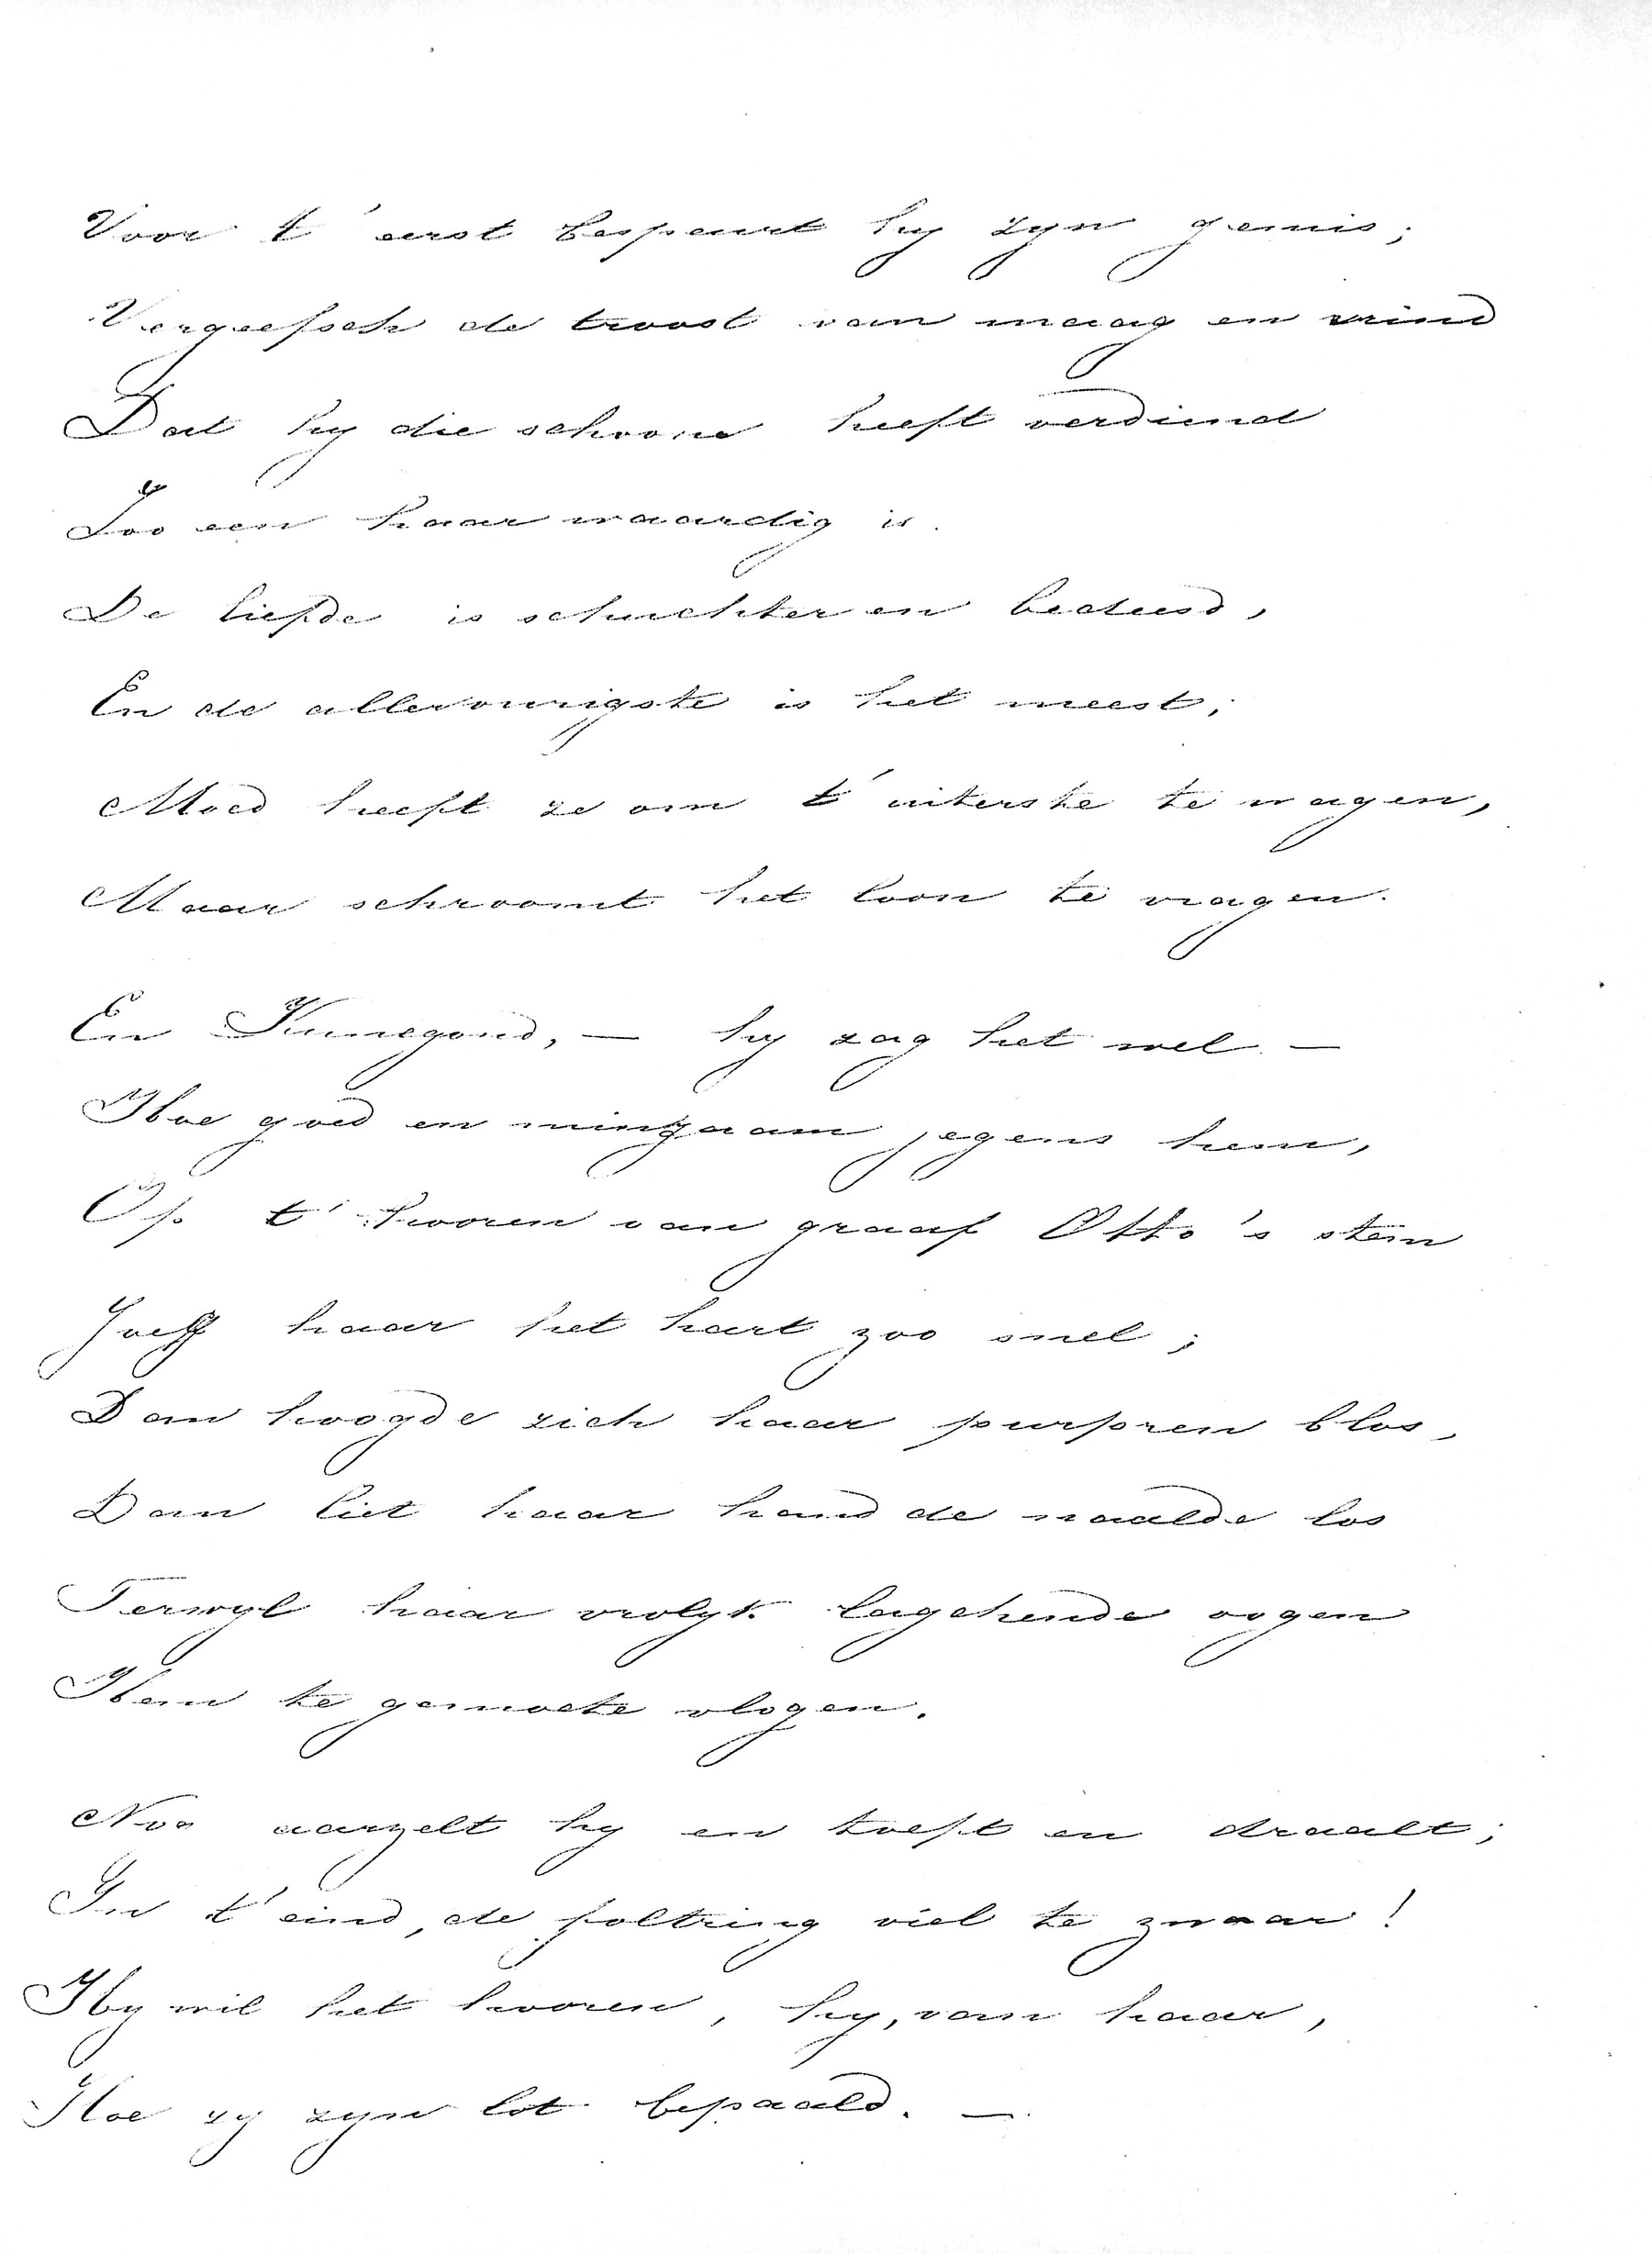 Voor t' eerst bespeurt hy zyn gemis;
Vergeefsch de troost van maag en vrind
Dat hy die schoone heeft verdiend
Zoo een haar waardig is.
De liefde is schuchter en bedeesd,
En de allervurigste is het meest;
Moed heeft ze om t' uiterste te wagen,
Maar schroomt het loon te vragen.
En Kunegond, — hy zag het wel —
Hoe goed en minzaam jegens hem,
Op t' hooren van graaf Otto's stem
Joeg haar het hart zoo snel;
Dan hoogde zich haar purpren blos,
Dan liet haar hand de naalde los
Terwyl haar vrolyk lagchende oogen
Hem te gemoete vlogen.
Nog aarzelt hy en toeft en draalt;
In t' eind, de foltring viel te zwaar!
Hy wil het hooren, hy, van haar,
Hoe zy zyn lot bepaald. —